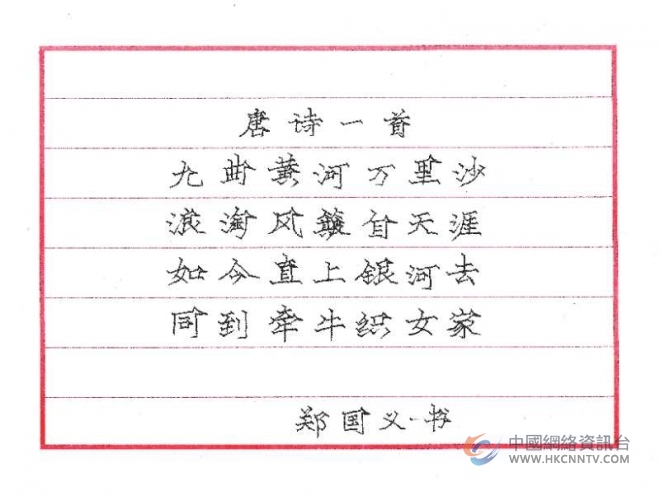 唐诗一首
九曲黄河万里沙
浪淘风簸自天涯
如今直上银河去
同到牵牛织女家
郑国义·书
中國網絡資訊台
WWW.HKCNNTV.COM